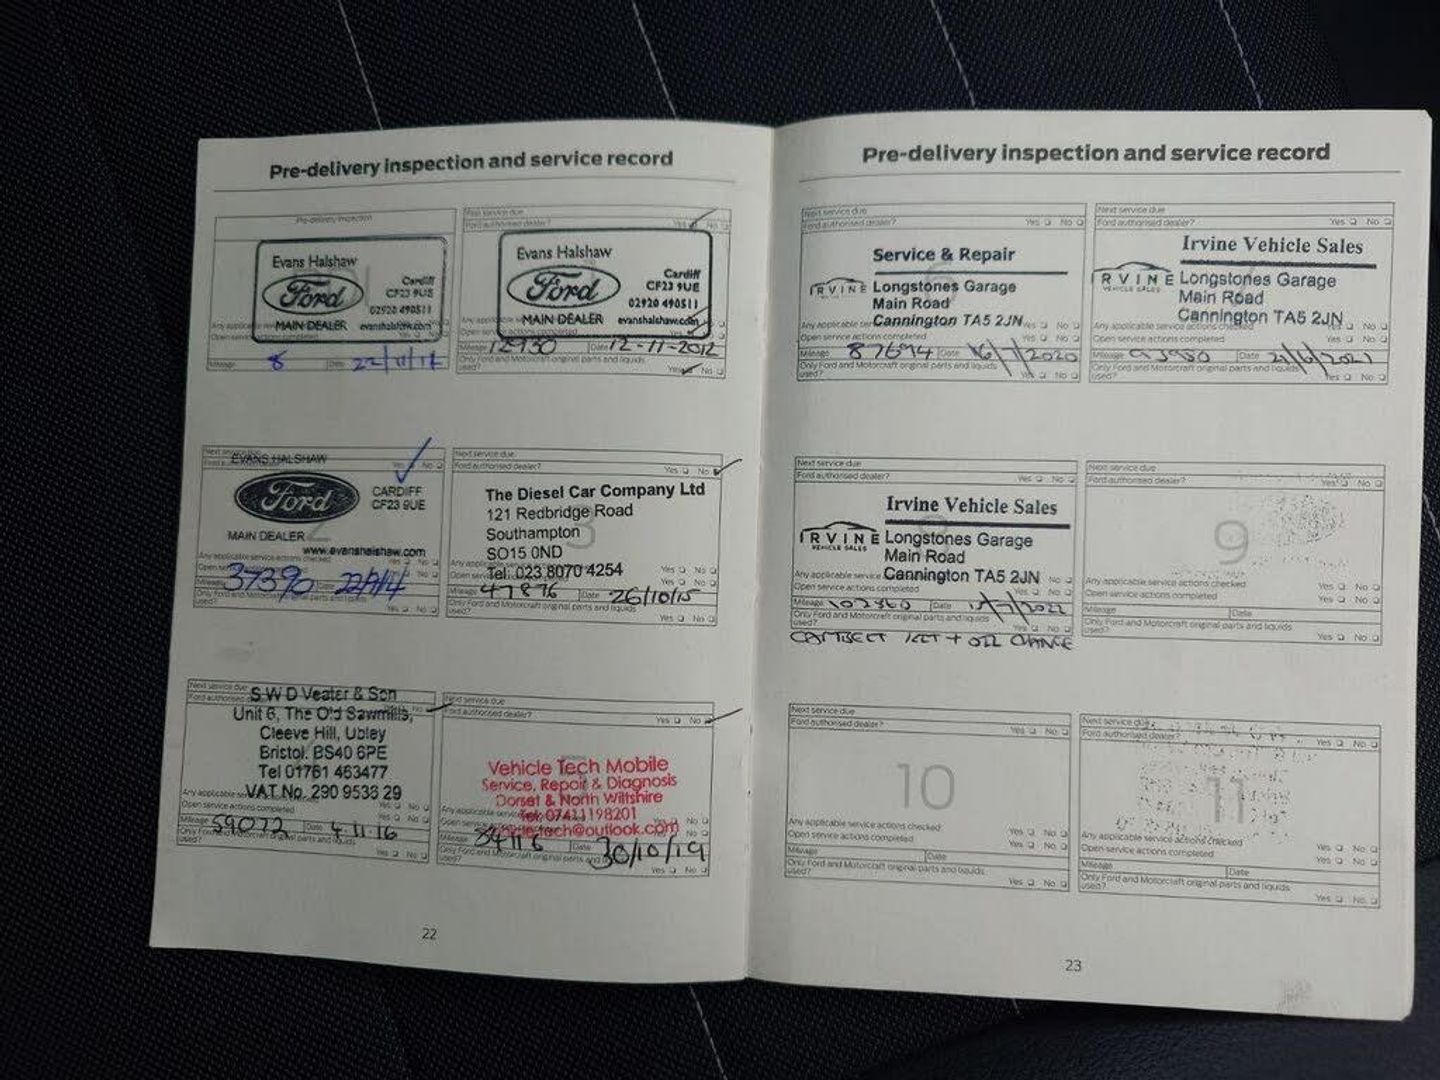 Pre-delivery inspection and service record
Pre-delivery inspection
Evans Halshaw
Ford
Cardiff
CF23 9UE
02920 490511
MAIN DEALER evanshalshaw.com
Mileage 8 Date
First service due
Ford authorised dealer? Yes No
Evans Halshaw
Ford
Cardiff
CF23 9UE
02920 490511
MAIN DEALER evanshalshaw.com
Open service actions completed
Mileage 12930 Date 12-11-2012
Only Ford and Motorcraft original parts and liquids
used? Yes No
Next service due
EVANS HALSHAW
No
Ford
CARDIFF
CF23 9UE
2
MAIN DEALER
www.evanshalshaw.com
Any applicable service actions checked
Mileage 37390 Date
Only Ford and Motorcraft original parts and liquids
used? Yes No
Next service due
Ford authorised dealer? Yes No
The Diesel Car Company Ltd
121 Redbridge Road
Southampton
SO15 0ND
3
Tel: 023 8070 4254 Yes No
Yes No
Mileage 47876 Date 26/10/15
Only Ford and Motorcraft original parts and liquids
used? Yes No
Next service due
Ford authorised dealer? No
S W D Veater & Son
Unit 6, The Old Sawmills,
Cleeve Hill, Ubley
Bristol. BS40 6PE
Tel 01761 463477
VAT No. 290 9536 29
Yes No
Open service actions completed
Mileage 59072 Date 4.11.16
Only Ford and Motorcraft original parts and liquids
used? Yes No
Next service due
Ford authorised dealer? Yes No
Vehicle Tech Mobile
Service, Repair & Diagnosis
Dorset & North Wiltshire
Tel: 07411198201
vehicle.tech@outlook.com
Mileage Date 30/10/19
Only Ford and Motorcraft original parts and
used? Yes No
22
Pre-delivery inspection and service record
Next service due
Ford authorised dealer? Yes No
Service & Repair
IRVINE
Longstones Garage
Main Road
Cannington TA5 2JN
Yes No
Open service actions completed Yes No
Mileage 87694 Date 16/7/2020
Only Ford and Motorcraft original parts and liquids
used? Yes No
Next service due
Ford authorised dealer? Yes No
Irvine Vehicle Sales
IRVINE
VEHICLE SALES
Longstones Garage
Main Road
Cannington TA5 2JN
Any applicable service actions checked Yes No
Open service actions completed Yes No
Mileage Date 21/6/2021
Only Ford and Motorcraft original parts and liquids
used? Yes No
Next service due
Ford authorised dealer? Yes No
Irvine Vehicle Sales
IRVINE
VEHICLE SALES
Longstones Garage
Main Road
Cannington TA5 2JN
Any applicable service
No
Open service actions completed Yes No
Mileage 102360 Date
Only Ford and Motorcraft original parts and liquids
used? Yes No
CAMBELT KIT + OIL CHANGE
Next service due
Ford authorised dealer? Yes No
9
Any applicable service actions checked
Open service actions completed Yes No
Yes No
Mileage Date
Only Ford and Motorcraft original parts and liquids
used? Yes No
Next service due
Ford authorised dealer? Yes No
10
Any applicable service actions checked
Open service actions completed Yes No
Yes No
Mileage Date
Only Ford and Motorcraft original parts and liquids
used? Yes No
Next service due
Ford authorised dealer? Yes No
11
Any applicable service actions checked
Open service actions completed Yes No
Yes No
Mileage Date
Only Ford and Motorcraft original parts and liquids
used? Yes No
23